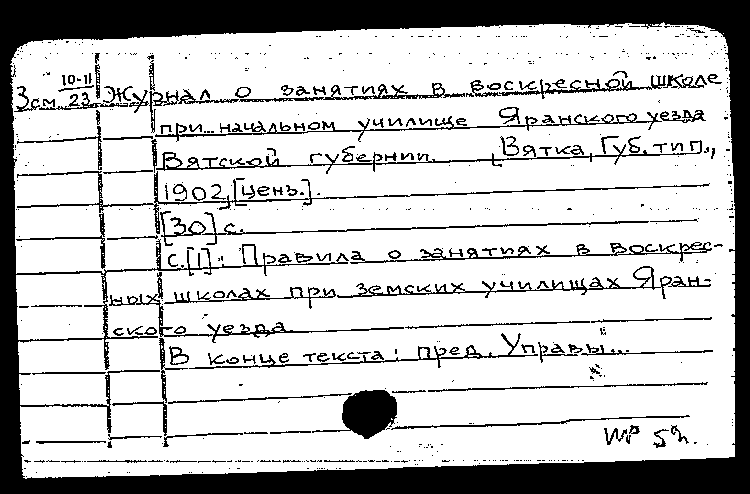 10-11
Зсм 23 Журнал о занятиях в воскресной школе
при начальном училище Яранского уезда
Вятской губернии. [Вятка, Губ. тип.,
1902, [ценз.].
[30] с.
с.[1]: Правила о занятиях в воскрес-
ных школах при земских училищах Яран-
ского уезда
В конце текста: пред. Управы...